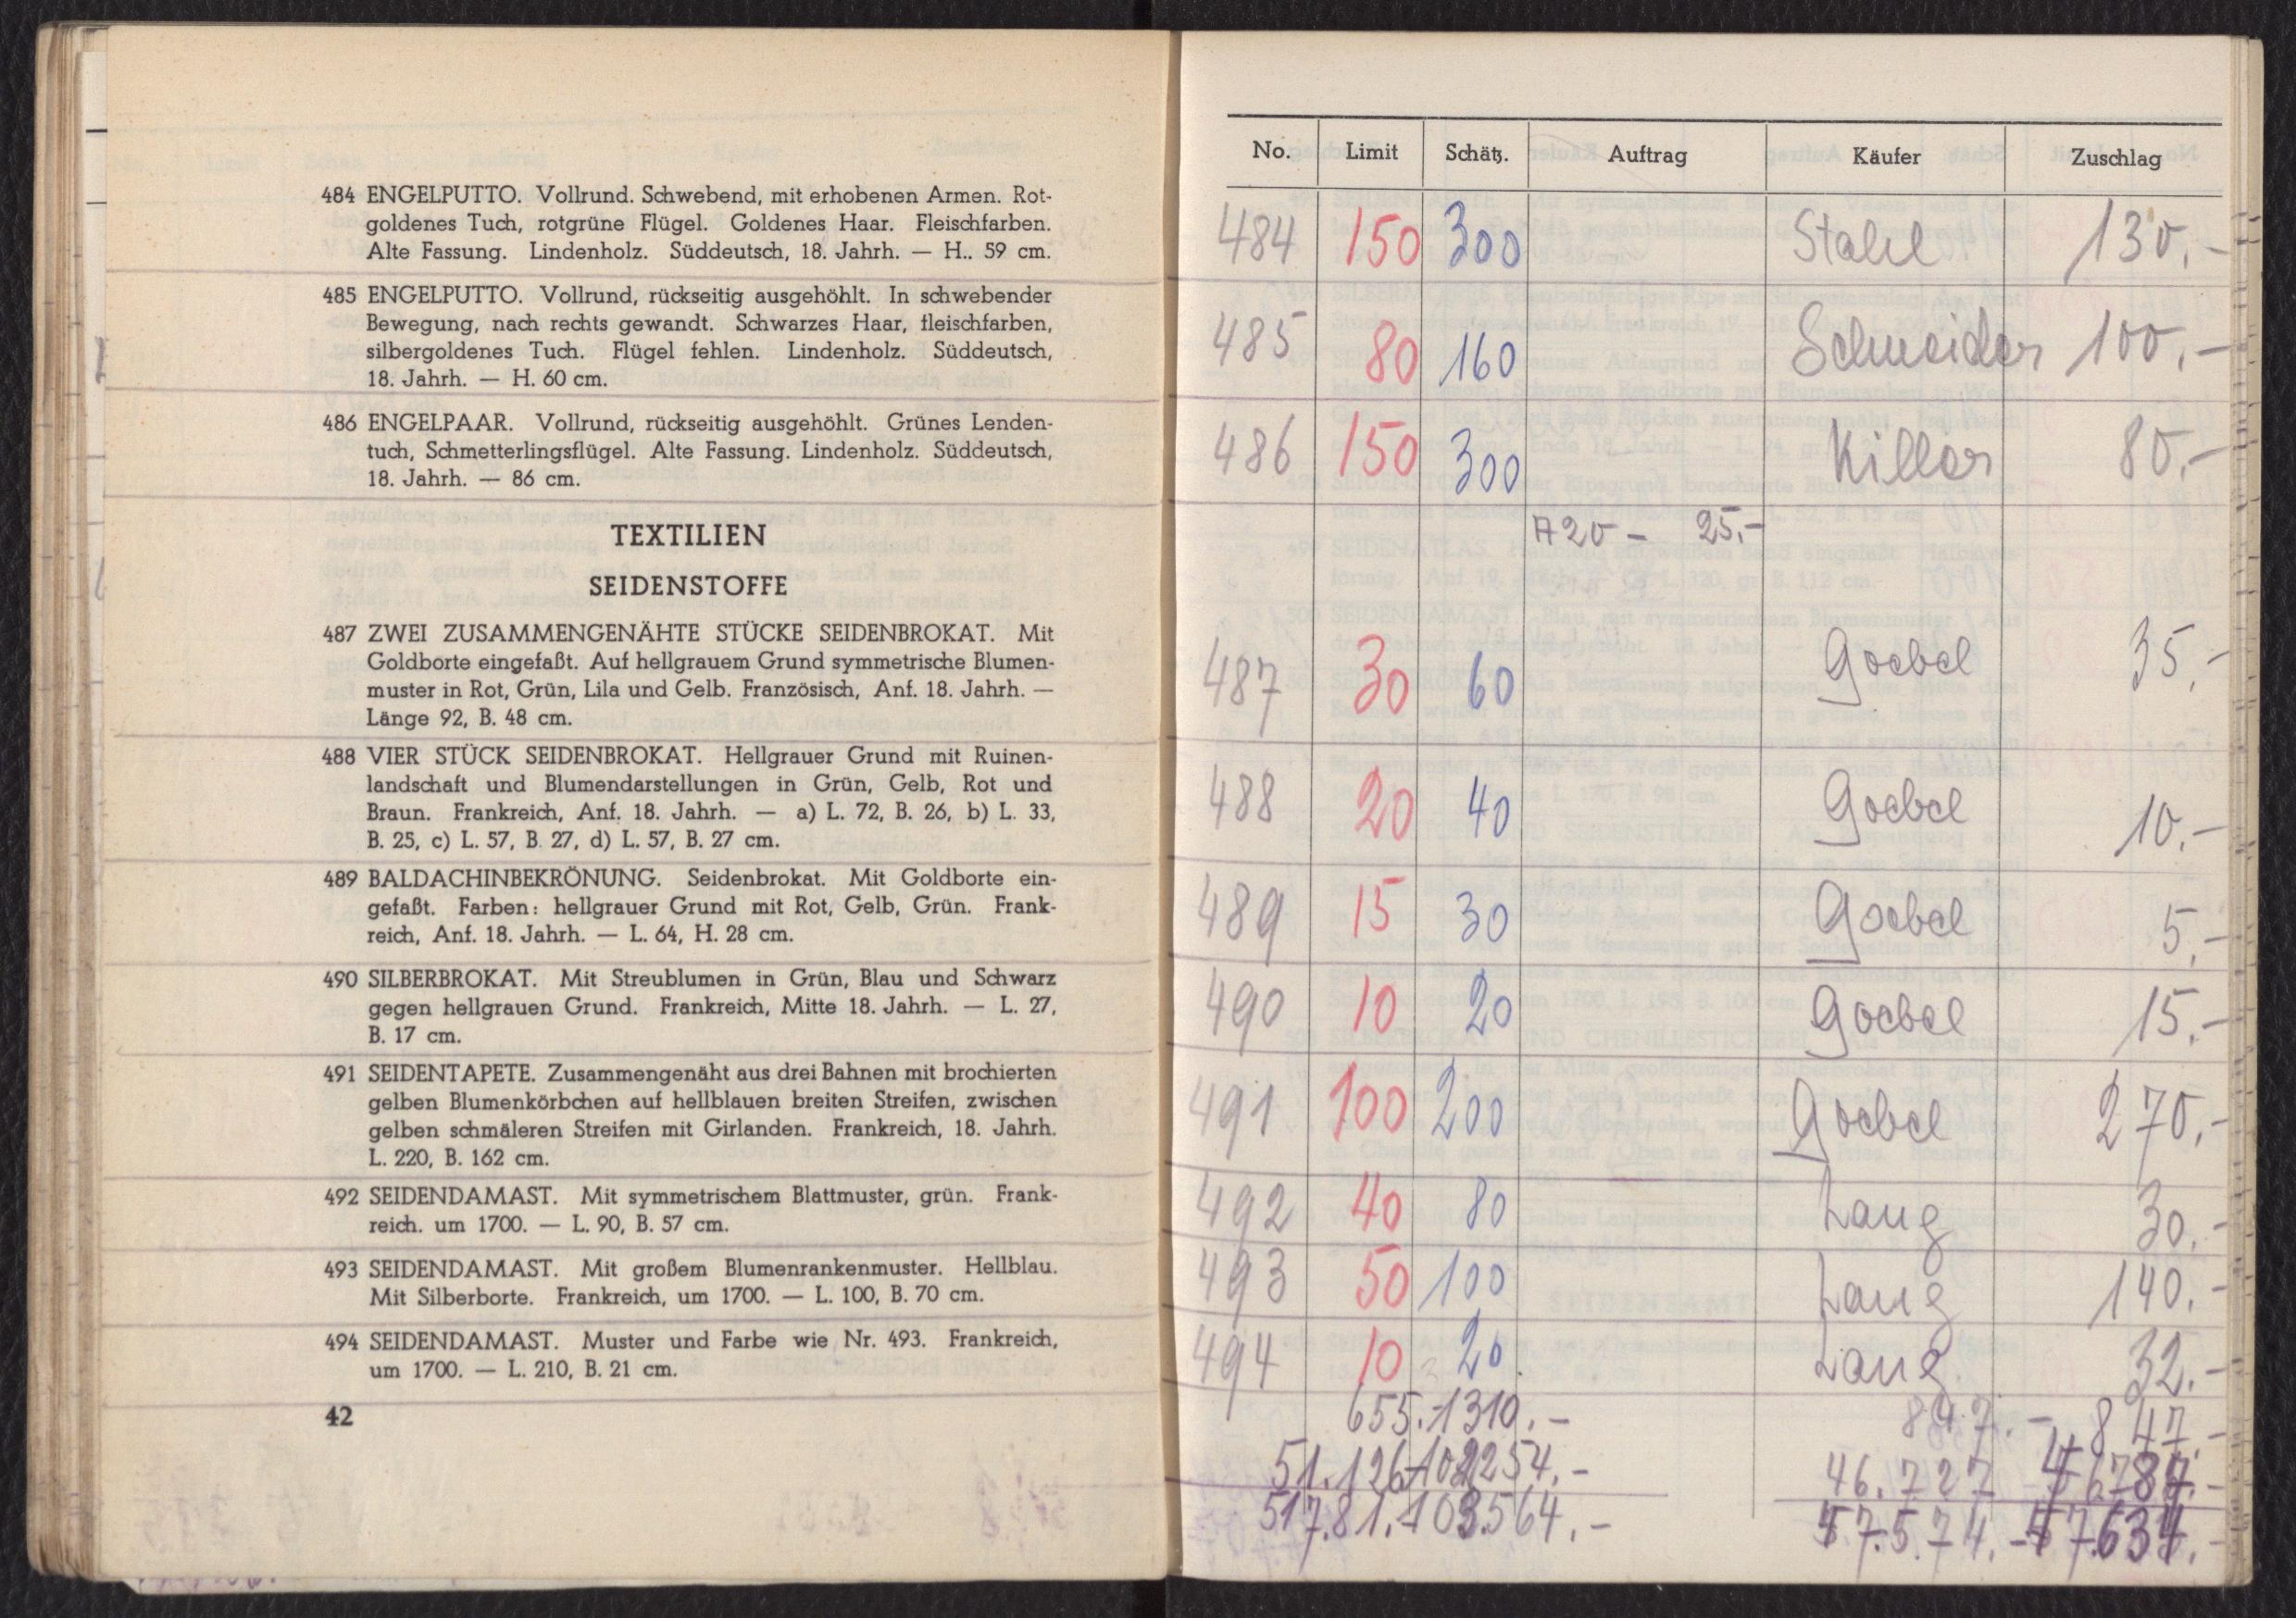 484 ENGELPUTTO. Vollrund. Schwebend, mit erhobenen Armen. Rot-
goldenes Tuch, rotgrüne Flügel. Goldenes Haar. Fleischfarben.
Alte Fassung. Lindenholz. Süddeutsch, 18. Jahrh. — H.. 59 cm.
485 ENGELPUTTO. Vollrund, rückseitig ausgehöhlt. In schwebender
Bewegung, nach rechts gewandt. Schwarzes Haar, fleischfarben,
silbergoldenes Tuch. Flügel fehlen. Lindenholz. Süddeutsch,
18. Jahrh. — H. 60 cm.
486 ENGELPAAR. Vollrund, rückseitig ausgehöhlt. Grünes Lenden-
tuch, Schmetterlingsflügel. Alte Fassung. Lindenholz. Süddeutsch,
18. Jahrh. — 86 cm.
TEXTILIEN
SEIDENSTOFFE
487 ZWEI ZUSAMMENGENÄHTE STÜCKE SEIDENBROKAT. Mit
Goldborte eingefaßt. Auf hellgrauem Grund symmetrische Blumen-
muster in Rot, Grün, Lila und Gelb. Französisch, Anf. 18. Jahrh. —
Länge 92, B. 48 cm.
488 VIER STÜCK SEIDENBROKAT. Hellgrauer Grund mit Ruinen-
landschaft und Blumendarstellungen in Grün, Gelb, Rot und
Braun. Frankreich, Anf. 18. Jahrh. — a) L. 72, B. 26, b) L. 33,
B. 25, c) L. 57, B. 27, d) L. 57, B. 27 cm.
489 BALDACHINBEKRÖNUNG. Seidenbrokat. Mit Goldborte ein-
gefaßt. Farben: hellgrauer Grund mit Rot, Gelb, Grün. Frank-
reich, Anf. 18. Jahrh. — L. 64, H. 28 cm.
490 SILBERBROKAT. Mit Streublumen in Grün, Blau und Schwarz
gegen hellgrauen Grund. Frankreich, Mitte 18. Jahrh. — L. 27,
B. 17 cm.
491 SEIDENTAPETE. Zusammengenäht aus drei Bahnen mit brochierten
gelben Blumenkörbchen auf hellblauen breiten Streifen, zwischen
gelben schmäleren Streifen mit Girlanden. Frankreich, 18. Jahrh.
L. 220, B. 162 cm.
492 SEIDENDAMAST. Mit symmetrischem Blattmuster, grün. Frank-
reich. um 1700. — L. 90, B. 57 cm.
493 SEIDENDAMAST. Mit großem Blumenrankenmuster. Hellblau.
Mit Silberborte. Frankreich, um 1700. — L. 100, B. 70 cm.
494 SEIDENDAMAST. Muster und Farbe wie Nr. 493. Frankreich,
um 1700. — L. 210, B. 21 cm.
42
No. Limit Schätz. Auftrag Käufer Zuschlag
484 150 300 Stahl 130.-
485 80 160 Schneider 100.-
486 150 300 Killer 80.-
A20 - 25.-
487 30 60 Goebel 35.-
488 20 40 Goebel 10.-
489 15 30 Goebel 5.-
490 10 20 Goebel 15.-
491 100 200 Goebel 270.-
492 40 80 Lang 30.-
493 50 100 Lang 140.-
494 10 20 Lang 32.-
655.- 1310.- 847.- 847.-
51.126.- 102254.- 46.727
517.81.- 103564.- 47.574.-